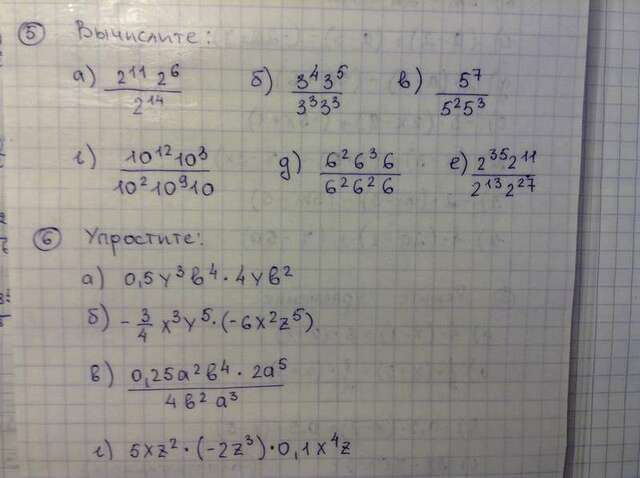 5 Вычислите:
а) 2¹¹ 2⁶ / 2¹⁴ б) 3⁴3⁵ / 3³3³ в) 5⁷ / 5²5³
г) 10¹²10³ / 10²10⁹10 д) 6²6³6 / 6²6²6 е) 2³⁵2¹¹ / 2¹³2²⁷
6 Упростите:
а) 0,5y³b⁴ · 4yb²
б) -3/4 x³y⁵ · (-6x²z⁵)
в) 0,25a²b⁴ · 2a⁵ / 4b²a³
г) 5xz² · (-2z³) · 0,1x⁴z